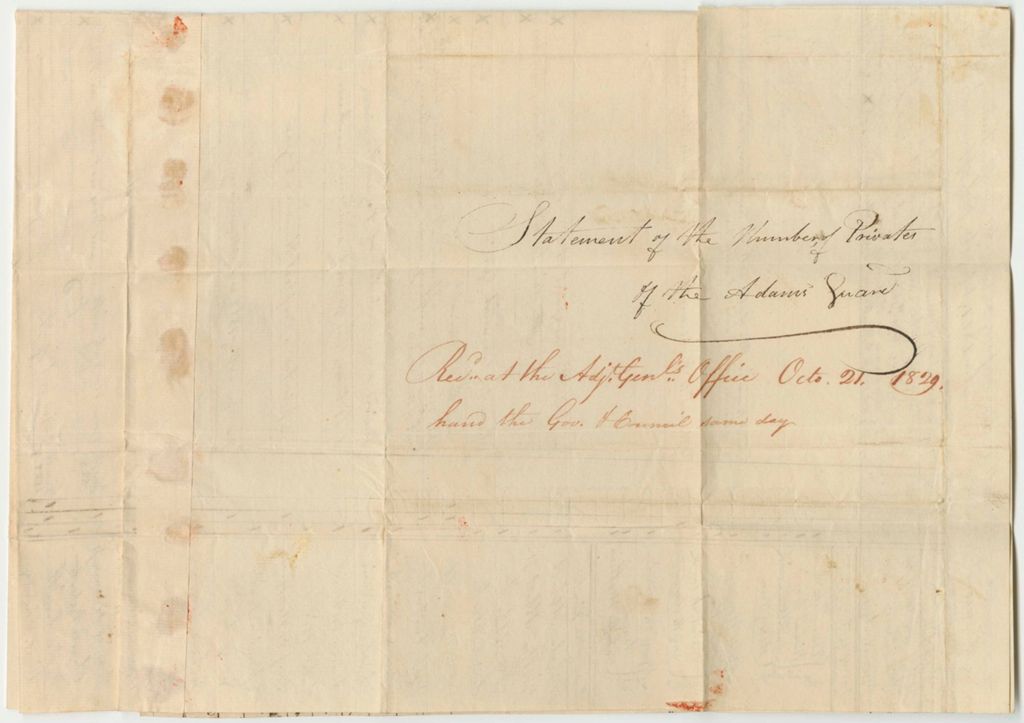 Statement of the Number of Privates
of the Adams Guard
Rec.d at the Adj.t Gen.l's Office Octo. 21. 1829.
hand the Gov. & Council same day